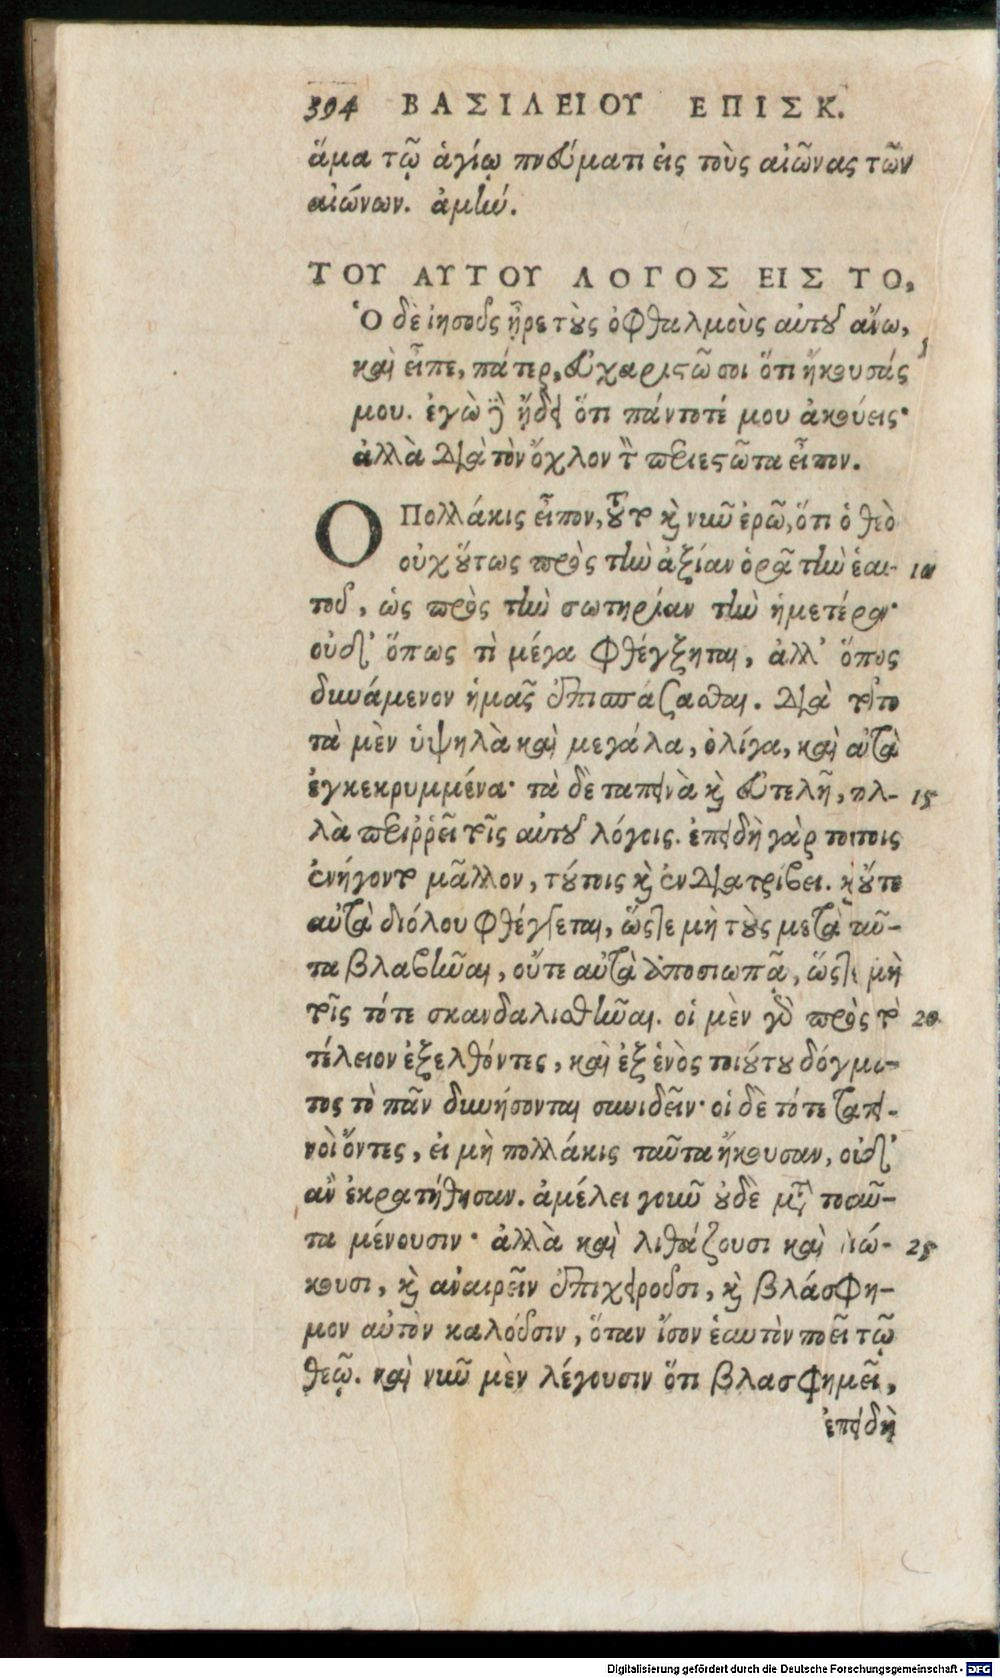 394 ΒΑΣΙΛΕΙΟΥ ΕΠΙΣΚ.
ἅμα τῷ ἁγίῳ πνεύματι εἰς τοὺς αἰῶνας τῶν
αἰώνων. ἀμήν.
ΤΟΥ ΑΥΤΟΥ ΛΟΓΟΣ ΕΙΣ ΤΟ,
Ὁ δὲ ἰησοῦς ἦρε τοὺς ὀφθαλμοὺς αὐτοῦ ἄνω,
καὶ εἶπε, πάτερ, εὐχαριστῶ σοι ὅτι ἤκουσάς
μου. ἐγὼ δὲ ᾔδειν ὅτι πάντοτέ μου ἀκούεις·
ἀλλὰ διὰ τὸν ὄχλον τὸν περιεστῶτα εἶπον.
Ο Πολλάκις εἶπον, τοῦτο καὶ νῦν ἐρῶ, ὅτι ὁ θεὸ
οὐχ οὕτως πρὸς τὴν ἀξίαν ὁρᾷ τὴν ἑαυ- 10
τοῦ, ὡς πρὸς τὴν σωτηρίαν τὴν ἡμετέραν·
οὐδ' ὅπως τὶ μέγα φθέγξηται, ἀλλ' ὅπως
δυνάμενον ἡμᾶς ἐπισπάσασθαι. διὰ τοῦτο
τὰ μὲν ὑψηλὰ καὶ μεγάλα, ὀλίγα, καὶ αὐτὰ
ἐγκεκρυμμένα· τὰ δὲ ταπεινὰ καὶ εὐτελῆ, πολ- 15
λὰ περιῤῥεῖ τοῖς αὐτοῦ λόγοις. ἐπειδὴ γὰρ τούτοις
ἐνήγοντο μᾶλλον, τούτοις καὶ ἐνδιατρίβει. καὶ οὔτε
αὐτὰ διόλου φθέγγεται, ὥστε μὴ τοὺς μετὰ ταῦ-
τα βλαβῆναι, οὔτε αὐτὰ ἀποσιωπᾷ, ὥστε μὴ
τοῖς τότε σκανδαλισθῆναι. οἱ μὲν γὰρ πρὸς τὸ 20
τέλειον ἐξελθόντες, καὶ ἐξ ἑνὸς τοιούτου δόγμα-
τος τὸ πᾶν δυνήσονται συνιδεῖν· οἱ δὲ τότε ταπει-
νοὶ ὄντες, εἰ μὴ πολλάκις ταῦτα ἤκουσαν, οὐδ'
ἂν ἐκρατήθησαν. ἀμέλει γοῦν οὐδὲ μετὰ τοσαῦ-
τα μένουσιν· ἀλλὰ καὶ λιθάζουσι καὶ διώ- 25
κουσι, καὶ ἀναιρεῖν ἐπιχειροῦσι, καὶ βλάσφη-
μον αὐτὸν καλοῦσιν, ὅταν ἴσον ἑαυτὸν ποιεῖ τῷ
θεῷ. καὶ νῦν μὲν λέγουσιν ὅτι βλασφημεῖ,
ἐπειδὴ
Digitalisierung gefördert durch die Deutsche Forschungsgemeinschaft - DFG